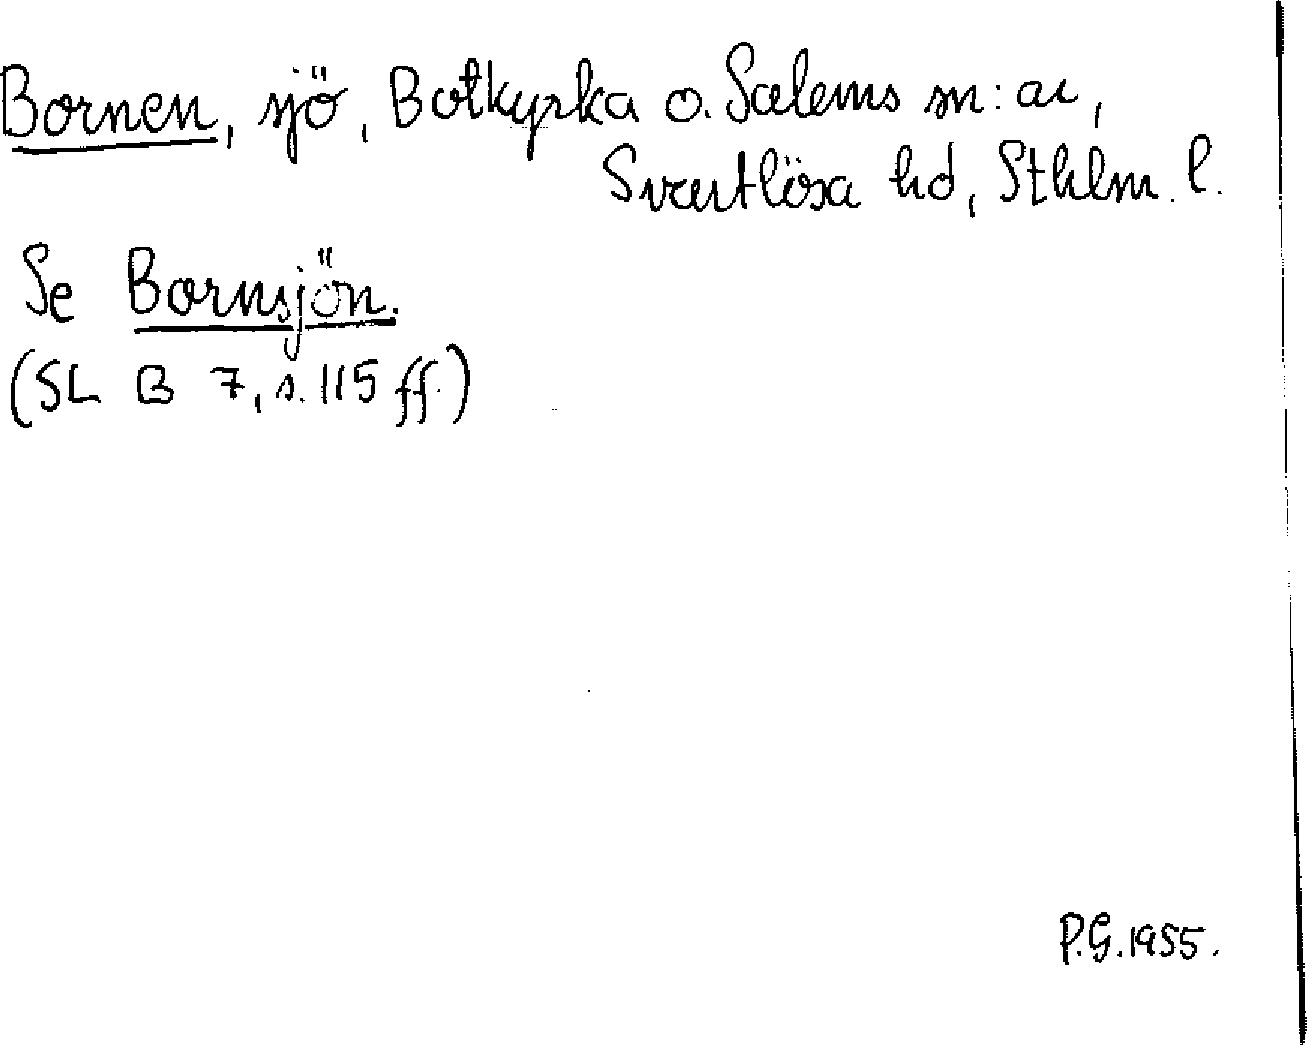 Bornen, sjö, Botkyrka o. Salems sn:ar,
Svartlösa hd, Sthlm. l.
Se Bornsjön.
(SL B 7, s. 115 ff.)
P.G. 1955.